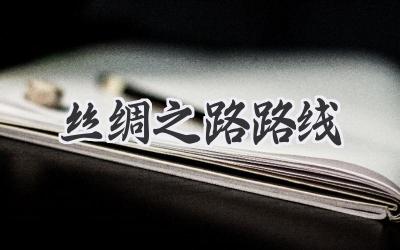 丝绸之路路线